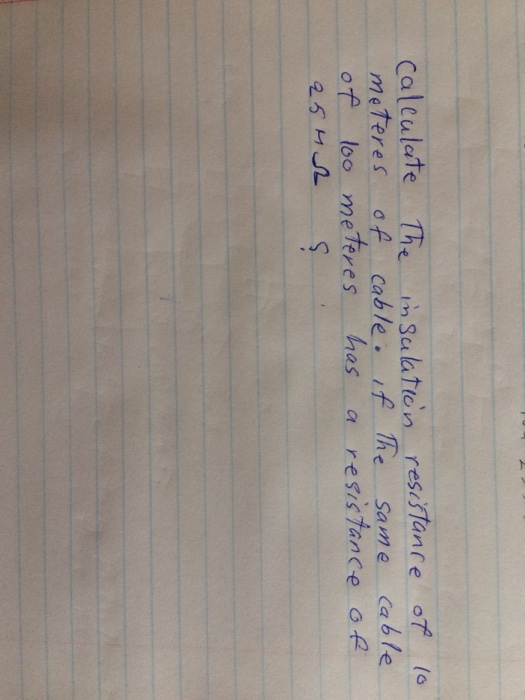 calculate The insulation resistance of 10
meteres of cable. if The same cable
of 100 meteres has a resistance of
25 M Ω ?